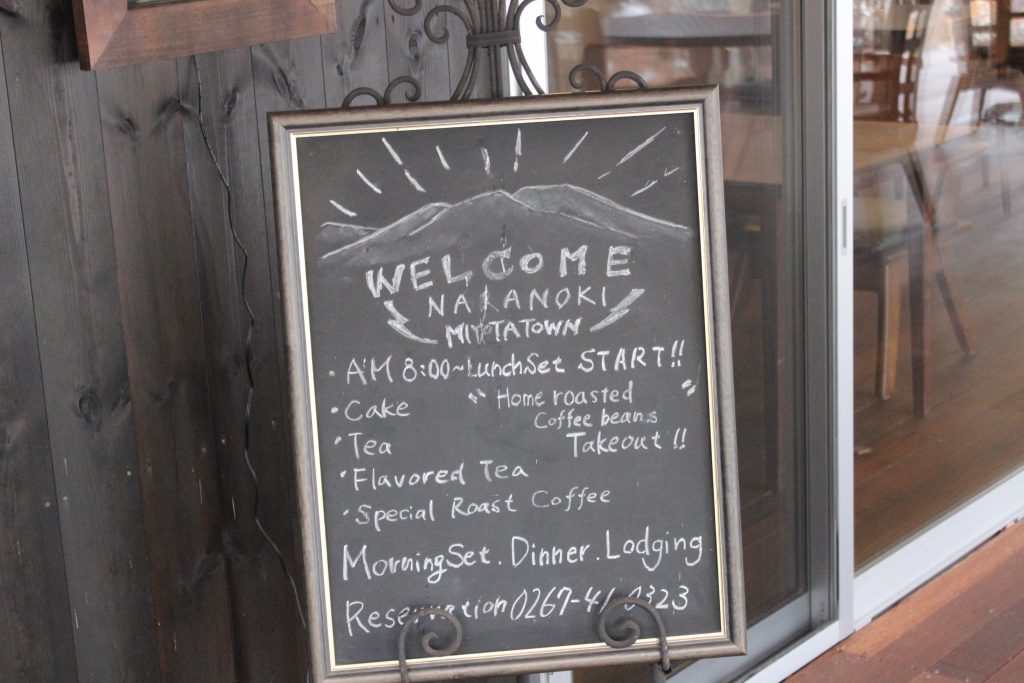 WELCOME
NAKANOKI
MIYOTATOWN
・AM 8:00~LunchSet START!!
・Cake "Home roasted
Coffee beans
・Tea Takeout!!"
・Flavored Tea
・Special Roast Coffee
MorningSet. Dinner. Lodging
Reservation 0267-41-0323